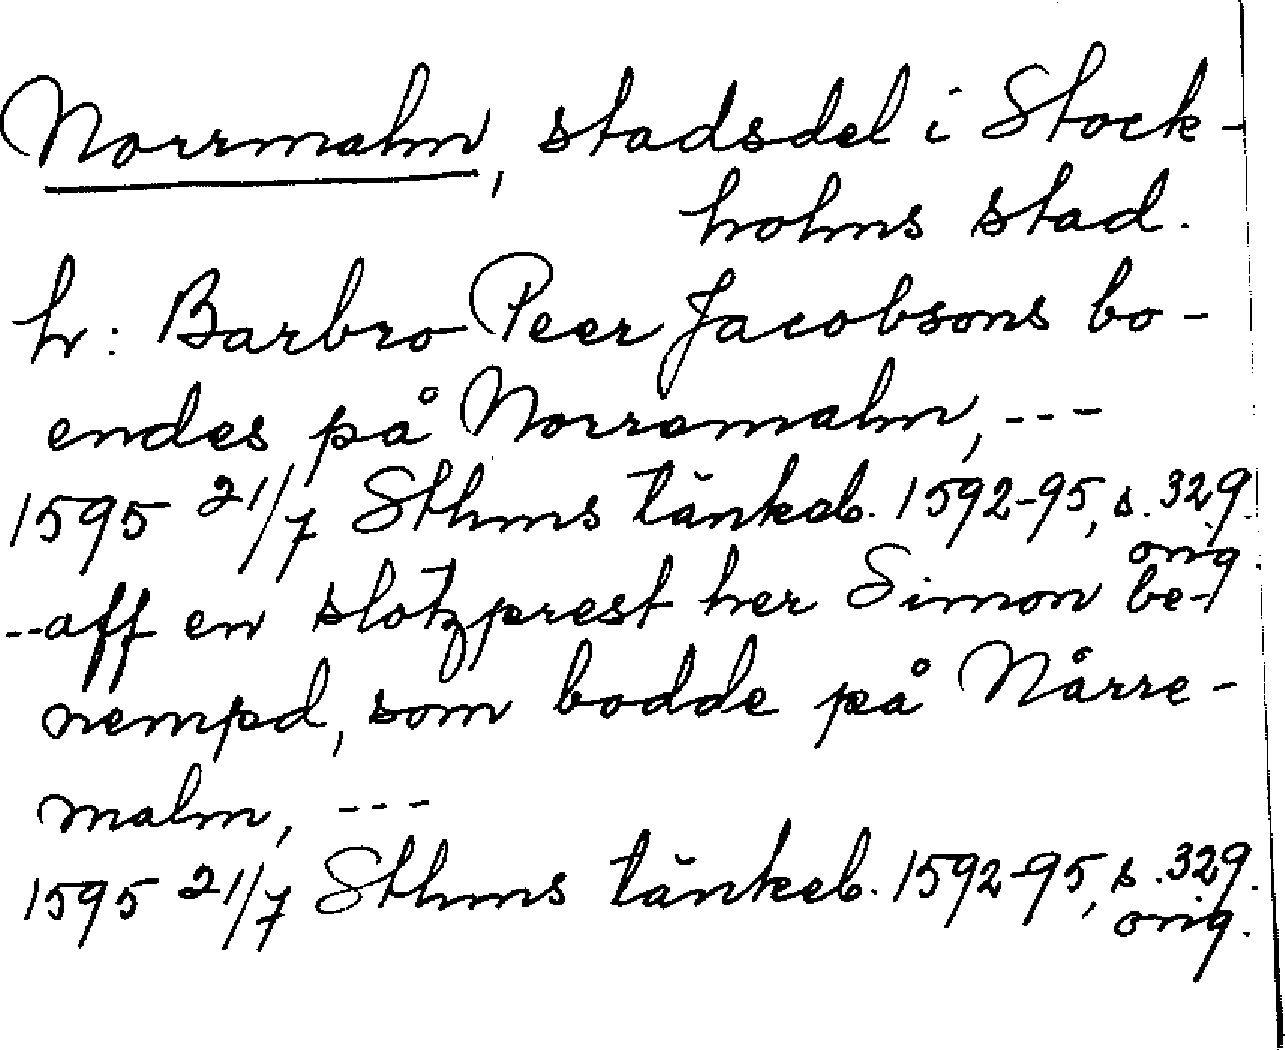 Norrmalm, stadsdel i Stock-
holms stad.
h: Barbro Peer Jacobsons bo-
endes på Norremalm, ---
1595 21/7 Sthms tänkeb. 1592-95, s. 329.
orig.
--aff en slotzprest her Simon be-
nempd, som bodde på Nårre-
malm, ---
1595 21/7 Sthms tänkeb. 1592-95, s. 329.
orig.